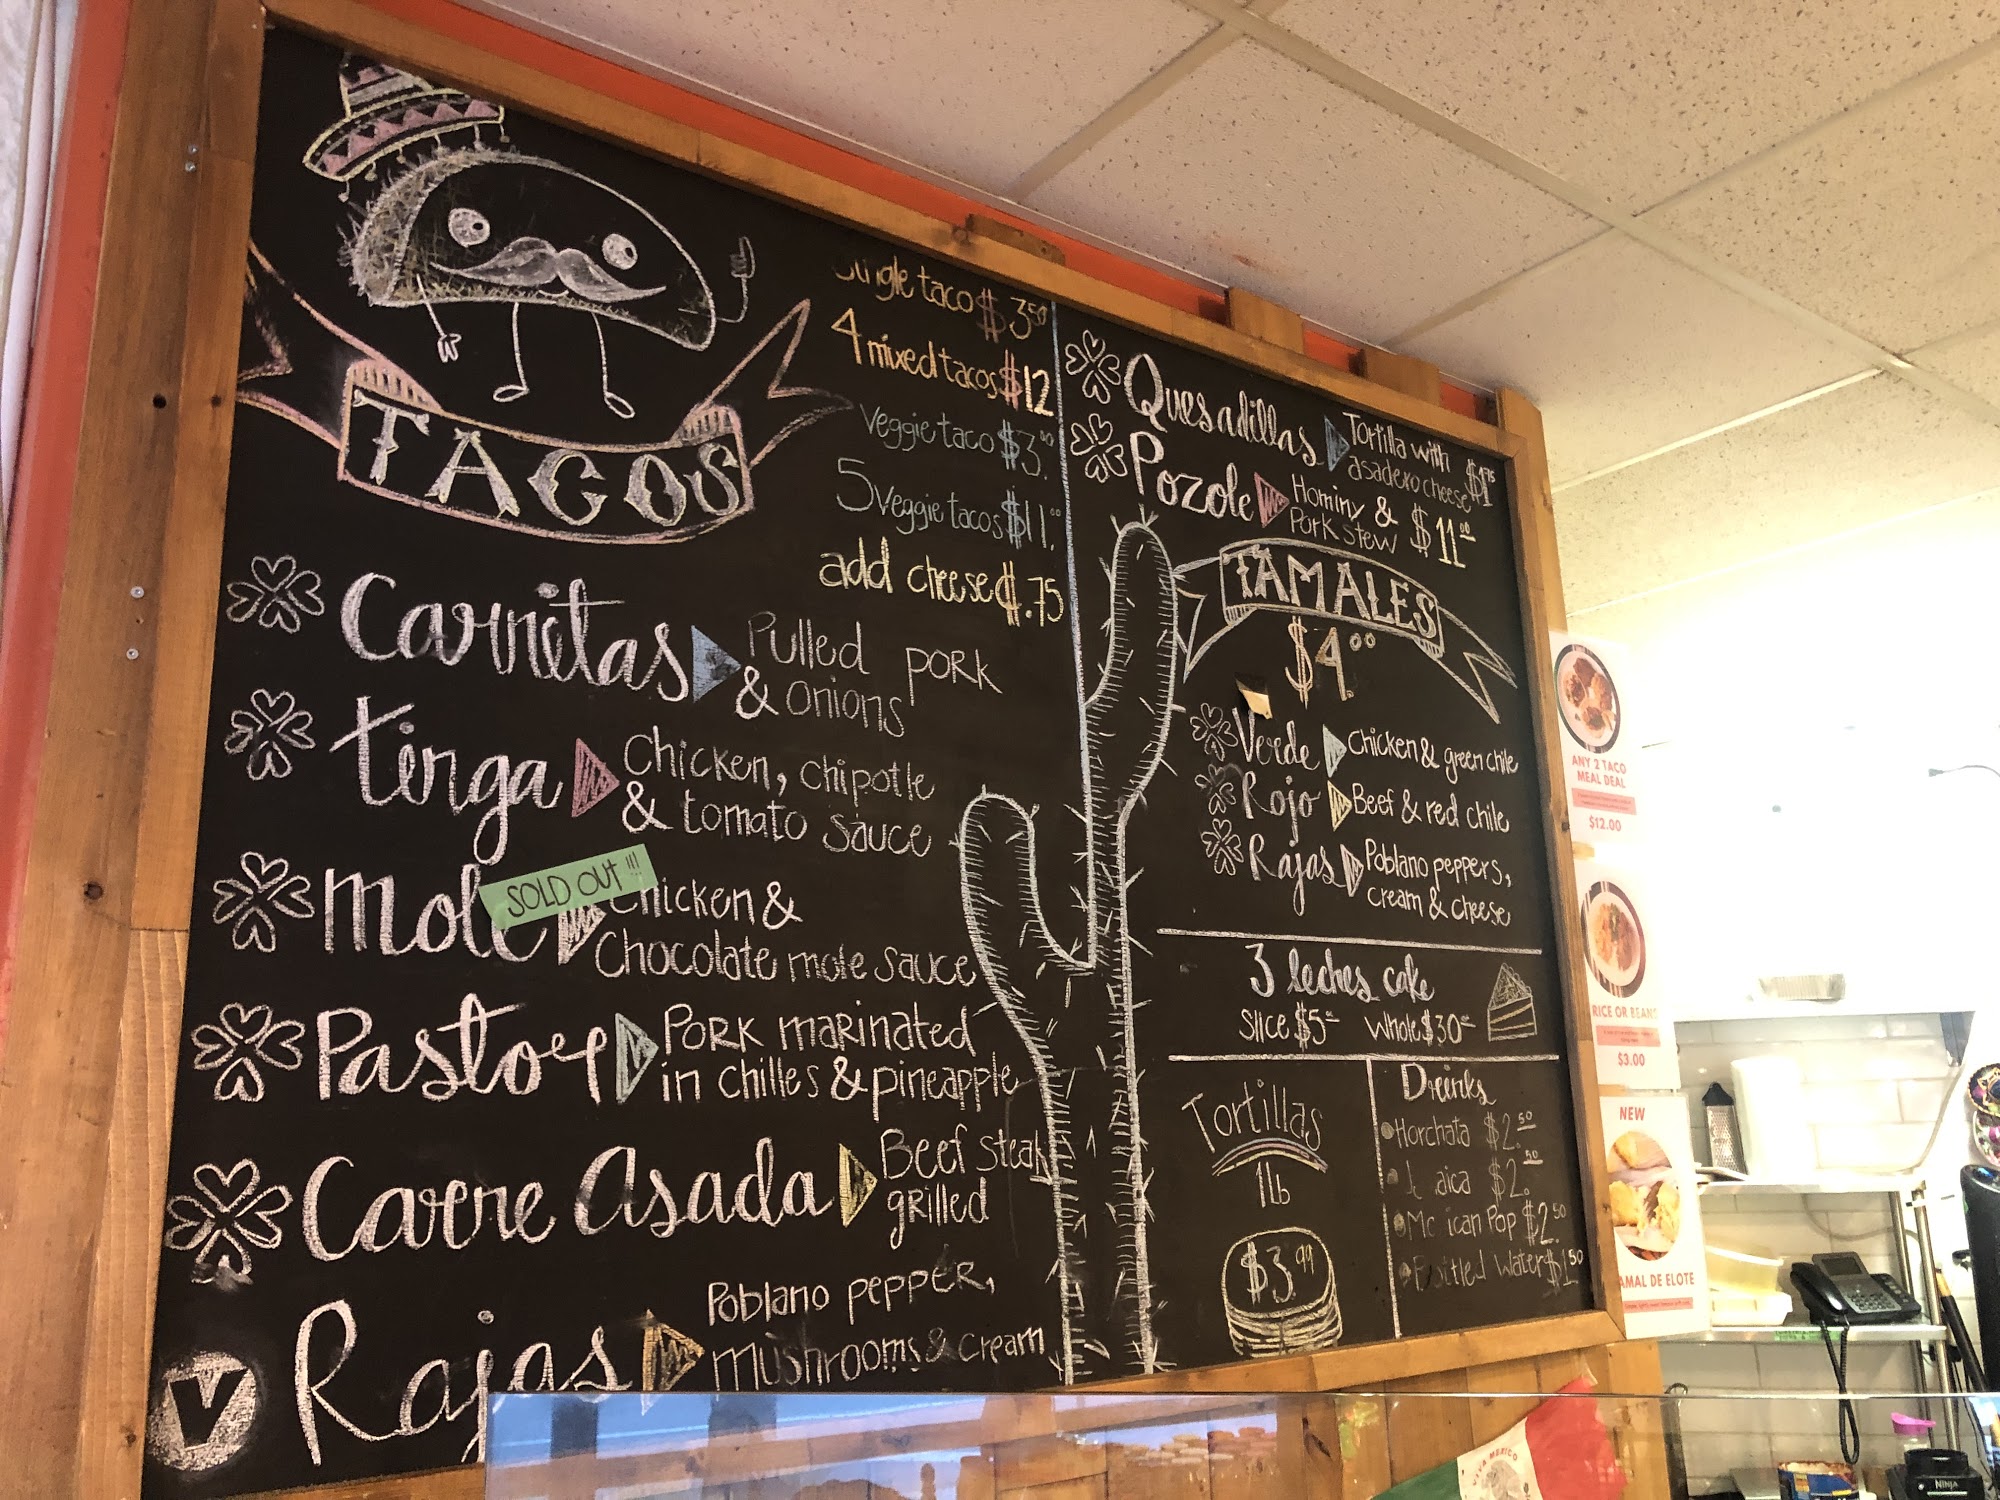 TACOS
Single taco $3.50
4 mixed tacos $12
Veggie taco $3.00
5 Veggie tacos $11.00
add cheese $.75
Carnitas
Pulled pork
& Onions
Tinga
Chicken, chipotle
& tomato sauce
Mole
SOLD OUT!!!
Chicken &
Chocolate mole sauce
Pastor
Pork marinated
in chilles & pineapple
Carne Asada
Beef steak
grilled
V
Rajas
Poblano pepper,
mushrooms & cream
Quesadillas
Tortilla with
asadero cheese $1.75
Pozole
Hominy &
Pork stew
$11.00
TAMALES
$4.00
Verde
Chicken & green chile
Rojo
Beef & red chile
Rajas
Poblano peppers,
cream & cheese
3 leches cake
Slice $5.00 Whole $30.00
Tortillas
1Lb
$3.99
Drinks
Horchata $2.50
$2.50
Pop $2.50
Water $1.50
ANY 2 TACO
MEAL DEAL
$12.00
RICE OR BEANS
$3.00
NEW
AMAL DE ELOTE
VIVA MEXICO
NINJA